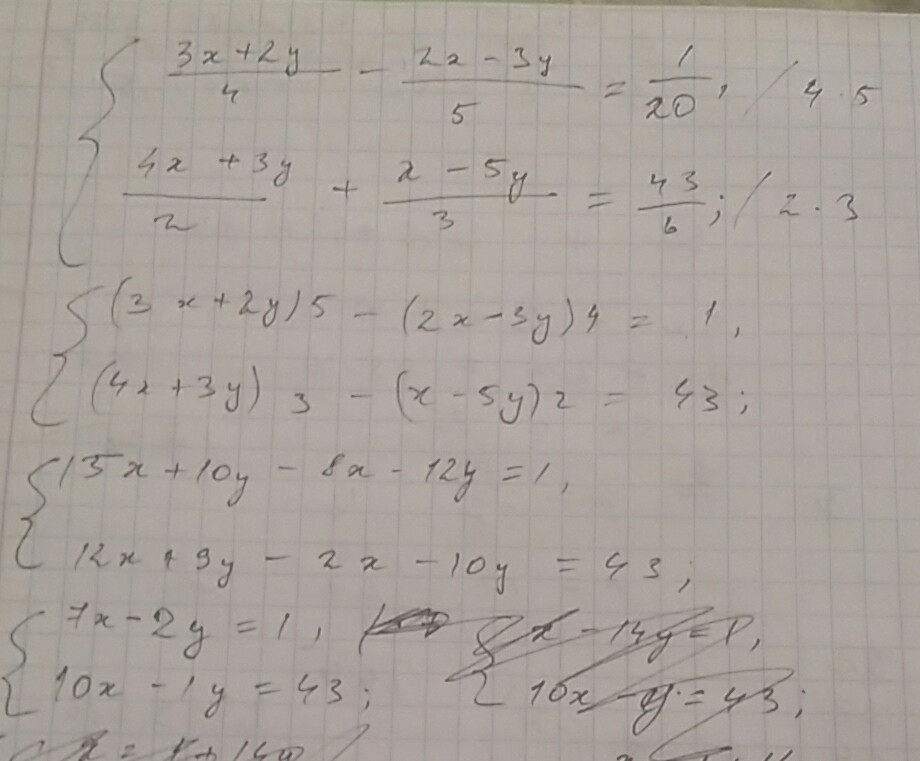 { (3x+2y)/4 - (2x-3y)/5 = 1/20, / 4·5
(4x+3y)/2 + (x-5y)/3 = 43/6; / 2·3
{ (3x+2y)5 - (2x-3y)4 = 1,
(4x+3y)3 - (x-5y)2 = 43;
{ 15x+10y - 8x - 12y = 1,
12x+9y - 2x - 10y = 43;
{ 7x-2y = 1,
10x - 1y = 43; 10x - y = 43;